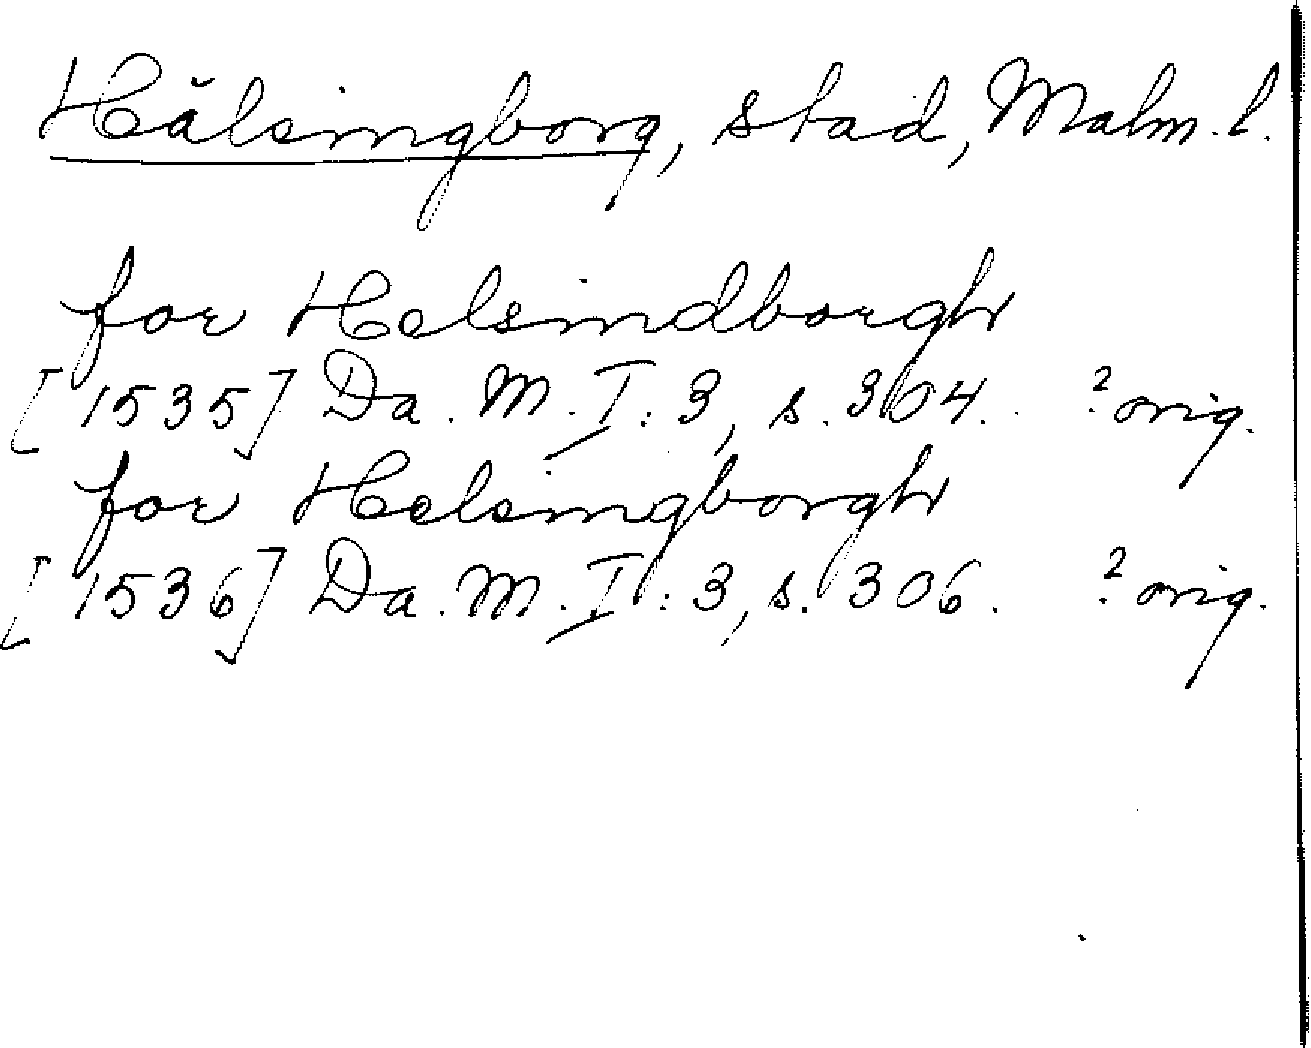 Hälsingborg, stad, Malm. l.
for Helsindborgh
[1535] Da. M. I: 3, s. 304. ? orig.
for Helsingborgh
[1536] Da. M. I: 3, s. 306. ? orig.